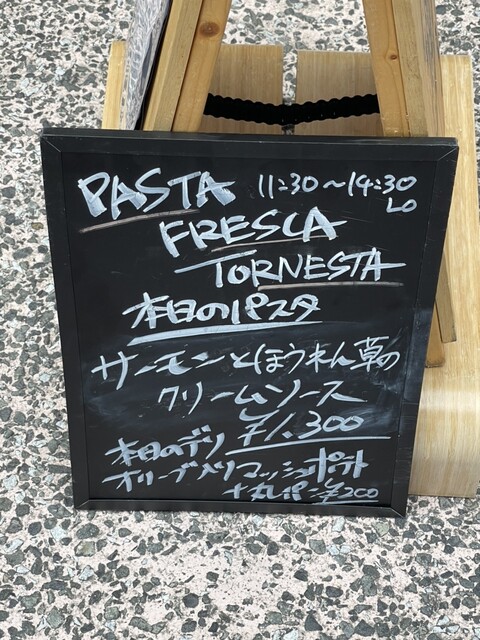 PASTA 11:30～14:30
LO
FRESCA
TORNESTA
本日のパスタ
サーモンとほうれん草の
クリームソース
¥1.300
本日のデリ
オリーブ入りマッシュポテト
+丸パン¥200